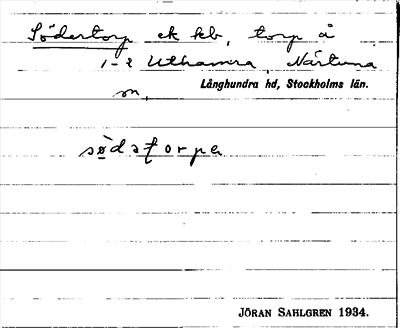 Södertorp ek kb, torp å
1-2 Uthamra, Närtuna
sn,
Långhundra hd, Stockholms län.
sø̀dәtorpa
JÖRAN SAHLGREN 1934.